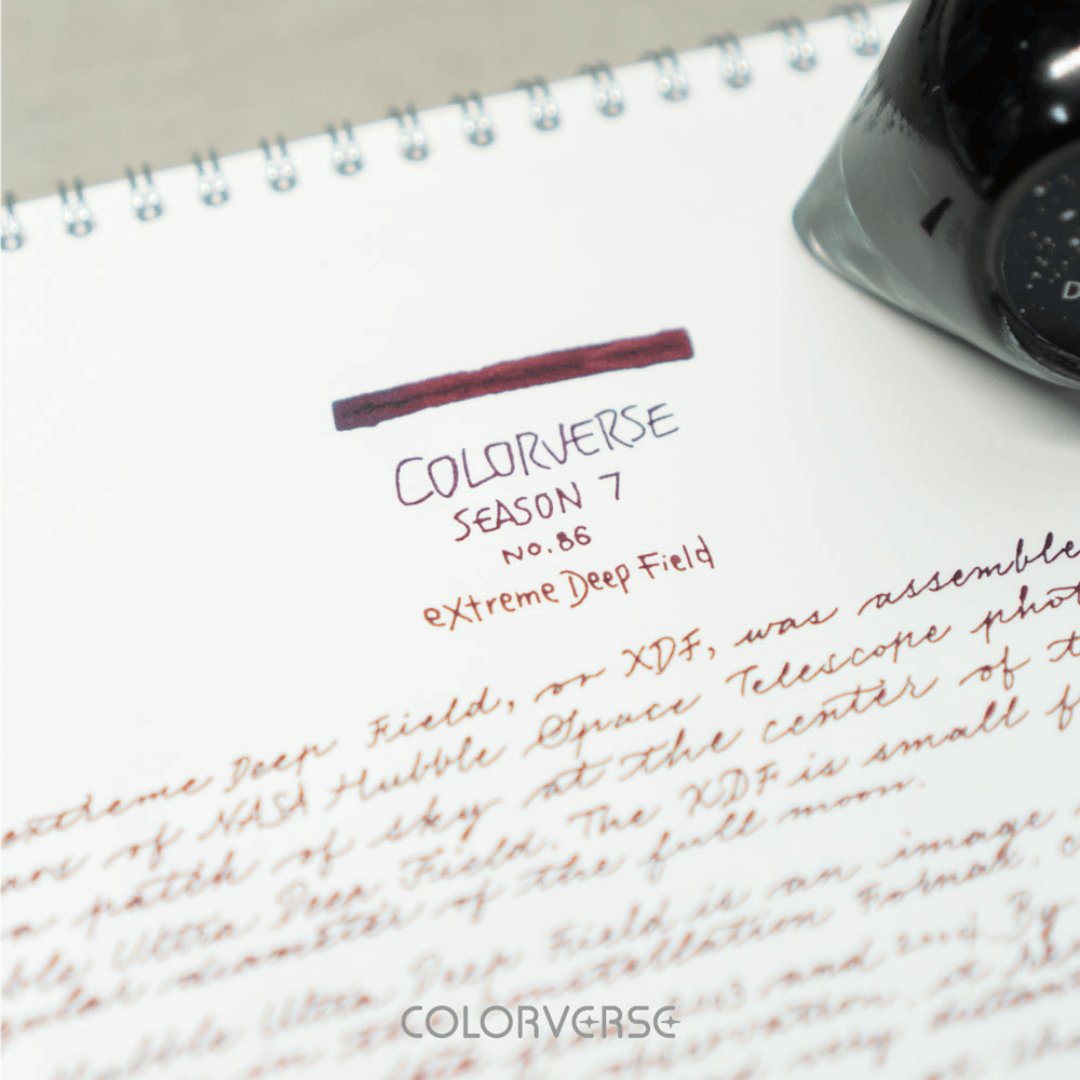 COLORVERSE
SEASON 7
NO.86
eXtreme Deep Field
extreme Deep Field, or XDF, was assemble
of NASA Hubble Space Telescope phot
a patch of sky at the center of t
ble Ultra Deep Field. The XDF is small f
gular diameter of the full moon.
Hubble Ultra Deep Field is an image
in the constellation Fornax, c
and 2004 By
D
COLORVERSE